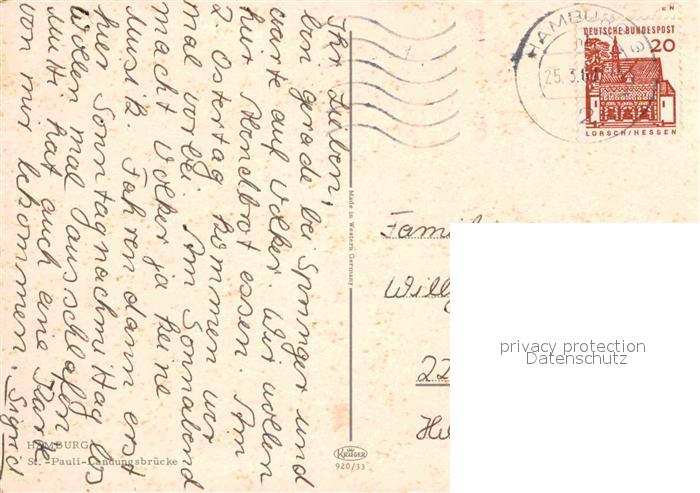 Ihr Lieben,
bin gerade bei Springer und
warte auf Volker. Wir wollen
hier Abendbrot essen. Am
2. Ostertag kommen wir
mal vorbei. Am Sonnabend
macht Volker ja keine
Musik. Fahren dann erst
hier Sonntagnachmittag los
Wollen mal ausschlafen.
Mutti hat auch eine Karte
von mir bekommen. Sigrid
HAMBURG
St.-Pauli-Landungsbrücke
Made in Western Germany
KRÜGER
920/33
HAMBURG
25.3.
DEUTSCHE BUNDESPOST
20
LORSCH/HESSEN
EN
Famil
Willy
22
privacy protection
Datenschutz